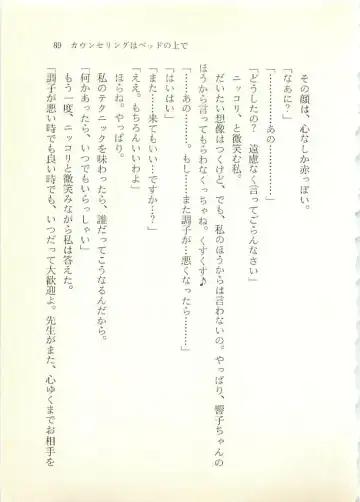 89　カウンセリングはベッドの上で
その顔は、心なしか赤っぽい。
「なあに？」
「………あの………」
「どうしたの？　遠慮なく言ってごらんなさい」
ニッコリ、と微笑む私。
だいたい想像はつくけど、でも、私のほうからは言わないの。やっぱり、響子ちゃんの
ほうから言ってもらわなくっちゃね。くすくす♪
「……あの……。もし……また調子が…悪くなったら……」
「はいはい」
「また……来てもいい…ですか…？」
「ええ。もちろんいいわよ」
ほらね。やっぱり。
私のテクニックを味わったら、誰だってこうなるんだから。
「何かあったら、いつでもいらっしゃい」
もう一度、ニッコリと微笑みながら私は答えた。
「調子が悪い時でも良い時でも、いつだって大歓迎よ。先生がまた、心ゆくまでお相手を